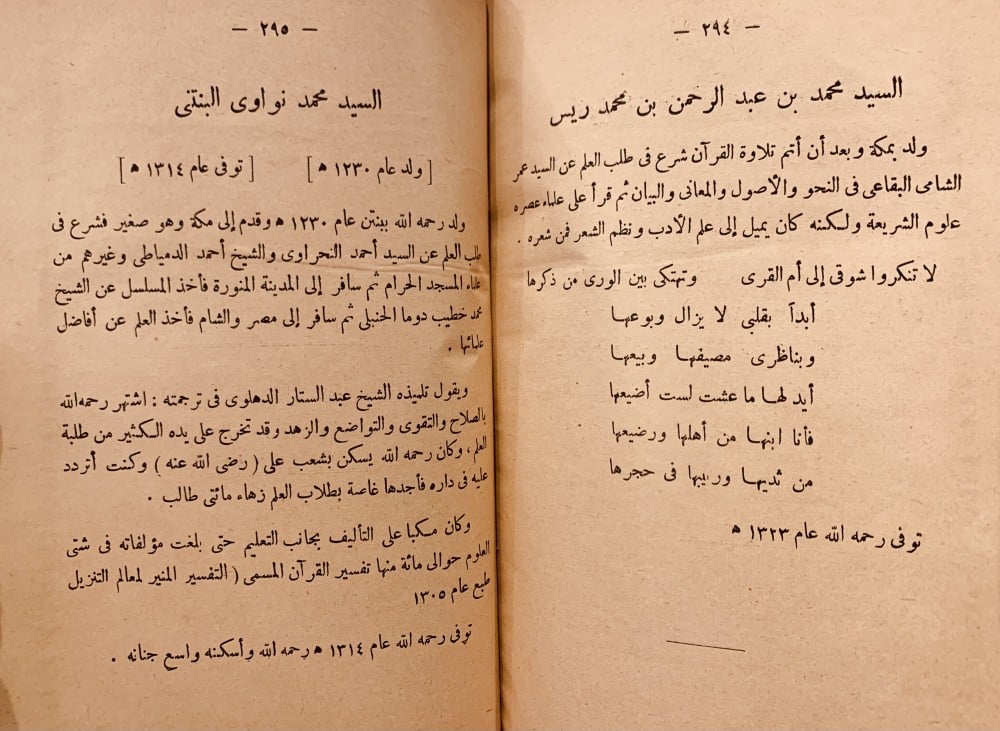 — ٢٩٤ —
السيد محمد بن عبد الرحمن بن محمد ريس
ولد بمكة وبعد أن أتم تلاوة القرآن شرع فى طلب العلم عن السيد عمر
الشامى البقاعى فى النحو والأصول والمعانى والبيان ثم قرأ على علماء عصره
علوم الشريعة ولكنه كان يميل إلى علم الأدب ونظم الشعر فمن شعره .
لا تنكروا شوقى إلى أم القرى وتهتكى بين الورى من ذكرها
أبداً بقلبى لا يزال وبوعها
وبناظرى مصيفها وبيعها
أيد لها ما عشت لست أضيعها
فأنا ابنها من أهلها ورضيعها
من ثديها وربيبها فى حجرها
توفى رحمه الله عام ١٣٢٣ ه
— ٢٩٥ —
السيد محمد نواوى البنتنى
[ ولد عام ١٢٣٠ ه ] [ توفى عام ١٣١٤ ه ]
ولد رحمه الله ببنتن عام ١٢٣٠ ه وقدم إلى مكة وهو صغير فشرع فى
طلب العلم عن السيد أحمد النحراوى والشيخ أحمد الدمياطى وغيرهم من
علماء المسجد الحرام ثم سافر إلى المدينة المنورة فأخذ المسلسل عن الشيخ
محمد خطيب دوما الحنبلى ثم سافر إلى مصر والشام فأخذ العلم عن أفاضل
علمائها .
ويقول تلميذه الشيخ عبد الستار الدهلوى فى ترجمته : اشتهر رحمه الله
بالصلاح والتقوى والتواضع والزهد وقد تخرج على يده الكثير من طلبة
العلم ، وكان رحمه الله يسكن بشعب على ( رضى الله عنه ) وكنت أتردد
عليه فى داره فأجدها غاصة بطلاب العلم زهاء مائتى طالب .
وكان مكبا على التأليف بجانب التعليم حتى بلغت مؤلفاته فى شتى
العلوم حوالى مائة منها تفسير القرآن المسمى ( التفسير المنير لمعالم التنزيل
طبع عام ١٣٠٥
توفى رحمه الله عام ١٣١٤ ه رحمه الله وأسكنه واسع جنانه .